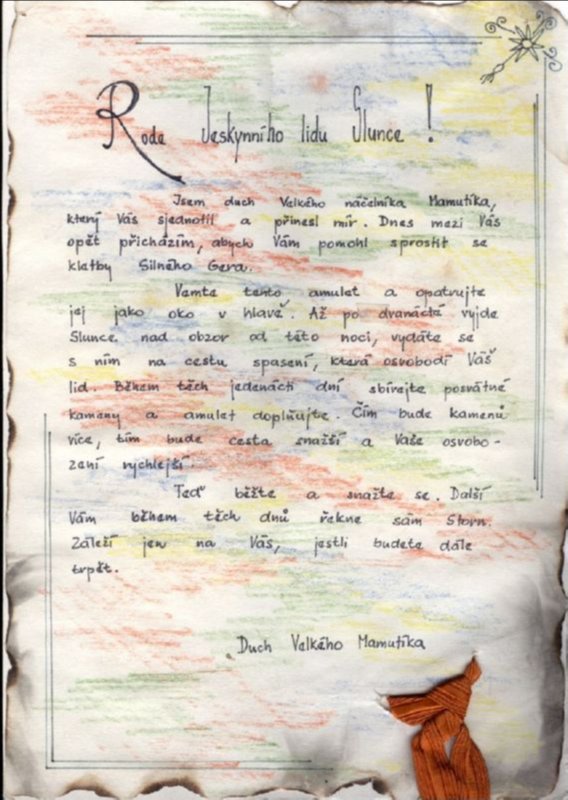 Rode Jeskynního lidu Slunce !
Jsem duch Velkého náčelníka Mamutíka,
který Vás sjednotil a přinesl mír. Dnes mezi Vás
opět přicházím, abych Vám pomohl sprostit se
kletby Silného Gera.
Vemte tento amulet a opatrujte
jej jako oko v hlavě. Až po dvanácté vyjde
Slunce nad obzor od této noci, vydáte se
s ním na cestu spasení, která osvobodí Váš
lid. Během těch jedenácti dní sbírejte posvátné
kameny a amulet doplňujte. Čím bude kamenů
více, tím bude cesta snažší a Vaše osvobo-
zení rychlejší.
Teď běžte a snažte se. Další
Vám během těch dnů řekne sám Storn.
Záleží jen na Vás, jestli budete dále
trpět.
Duch Velkého Mamutíka